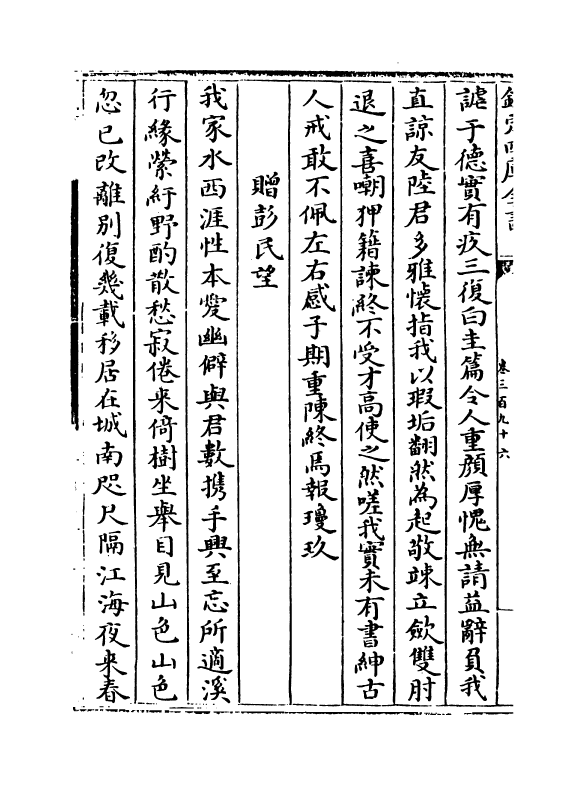 欽定四庫全書
卷三百九十六
謔于德實有疚三復白圭篇令人重顔厚愧無請益辭負我
直諒友陸君多雅懷指我以瑕垢翻然為起敬竦立歛雙肘
退之喜嘲狎籍諫終不受才高使之然嗟我實未有書紳古
人戒敢不佩左右感子期重陳終焉報瓊玖
贈彭民望
我家水西涯性本愛幽僻與君數携手興至忘所適溪
行緣縈紆野酌散愁寂倦来倚樹坐舉目見山色山色
忽已改離别復幾載移居在城南咫尺隔江海夜来春